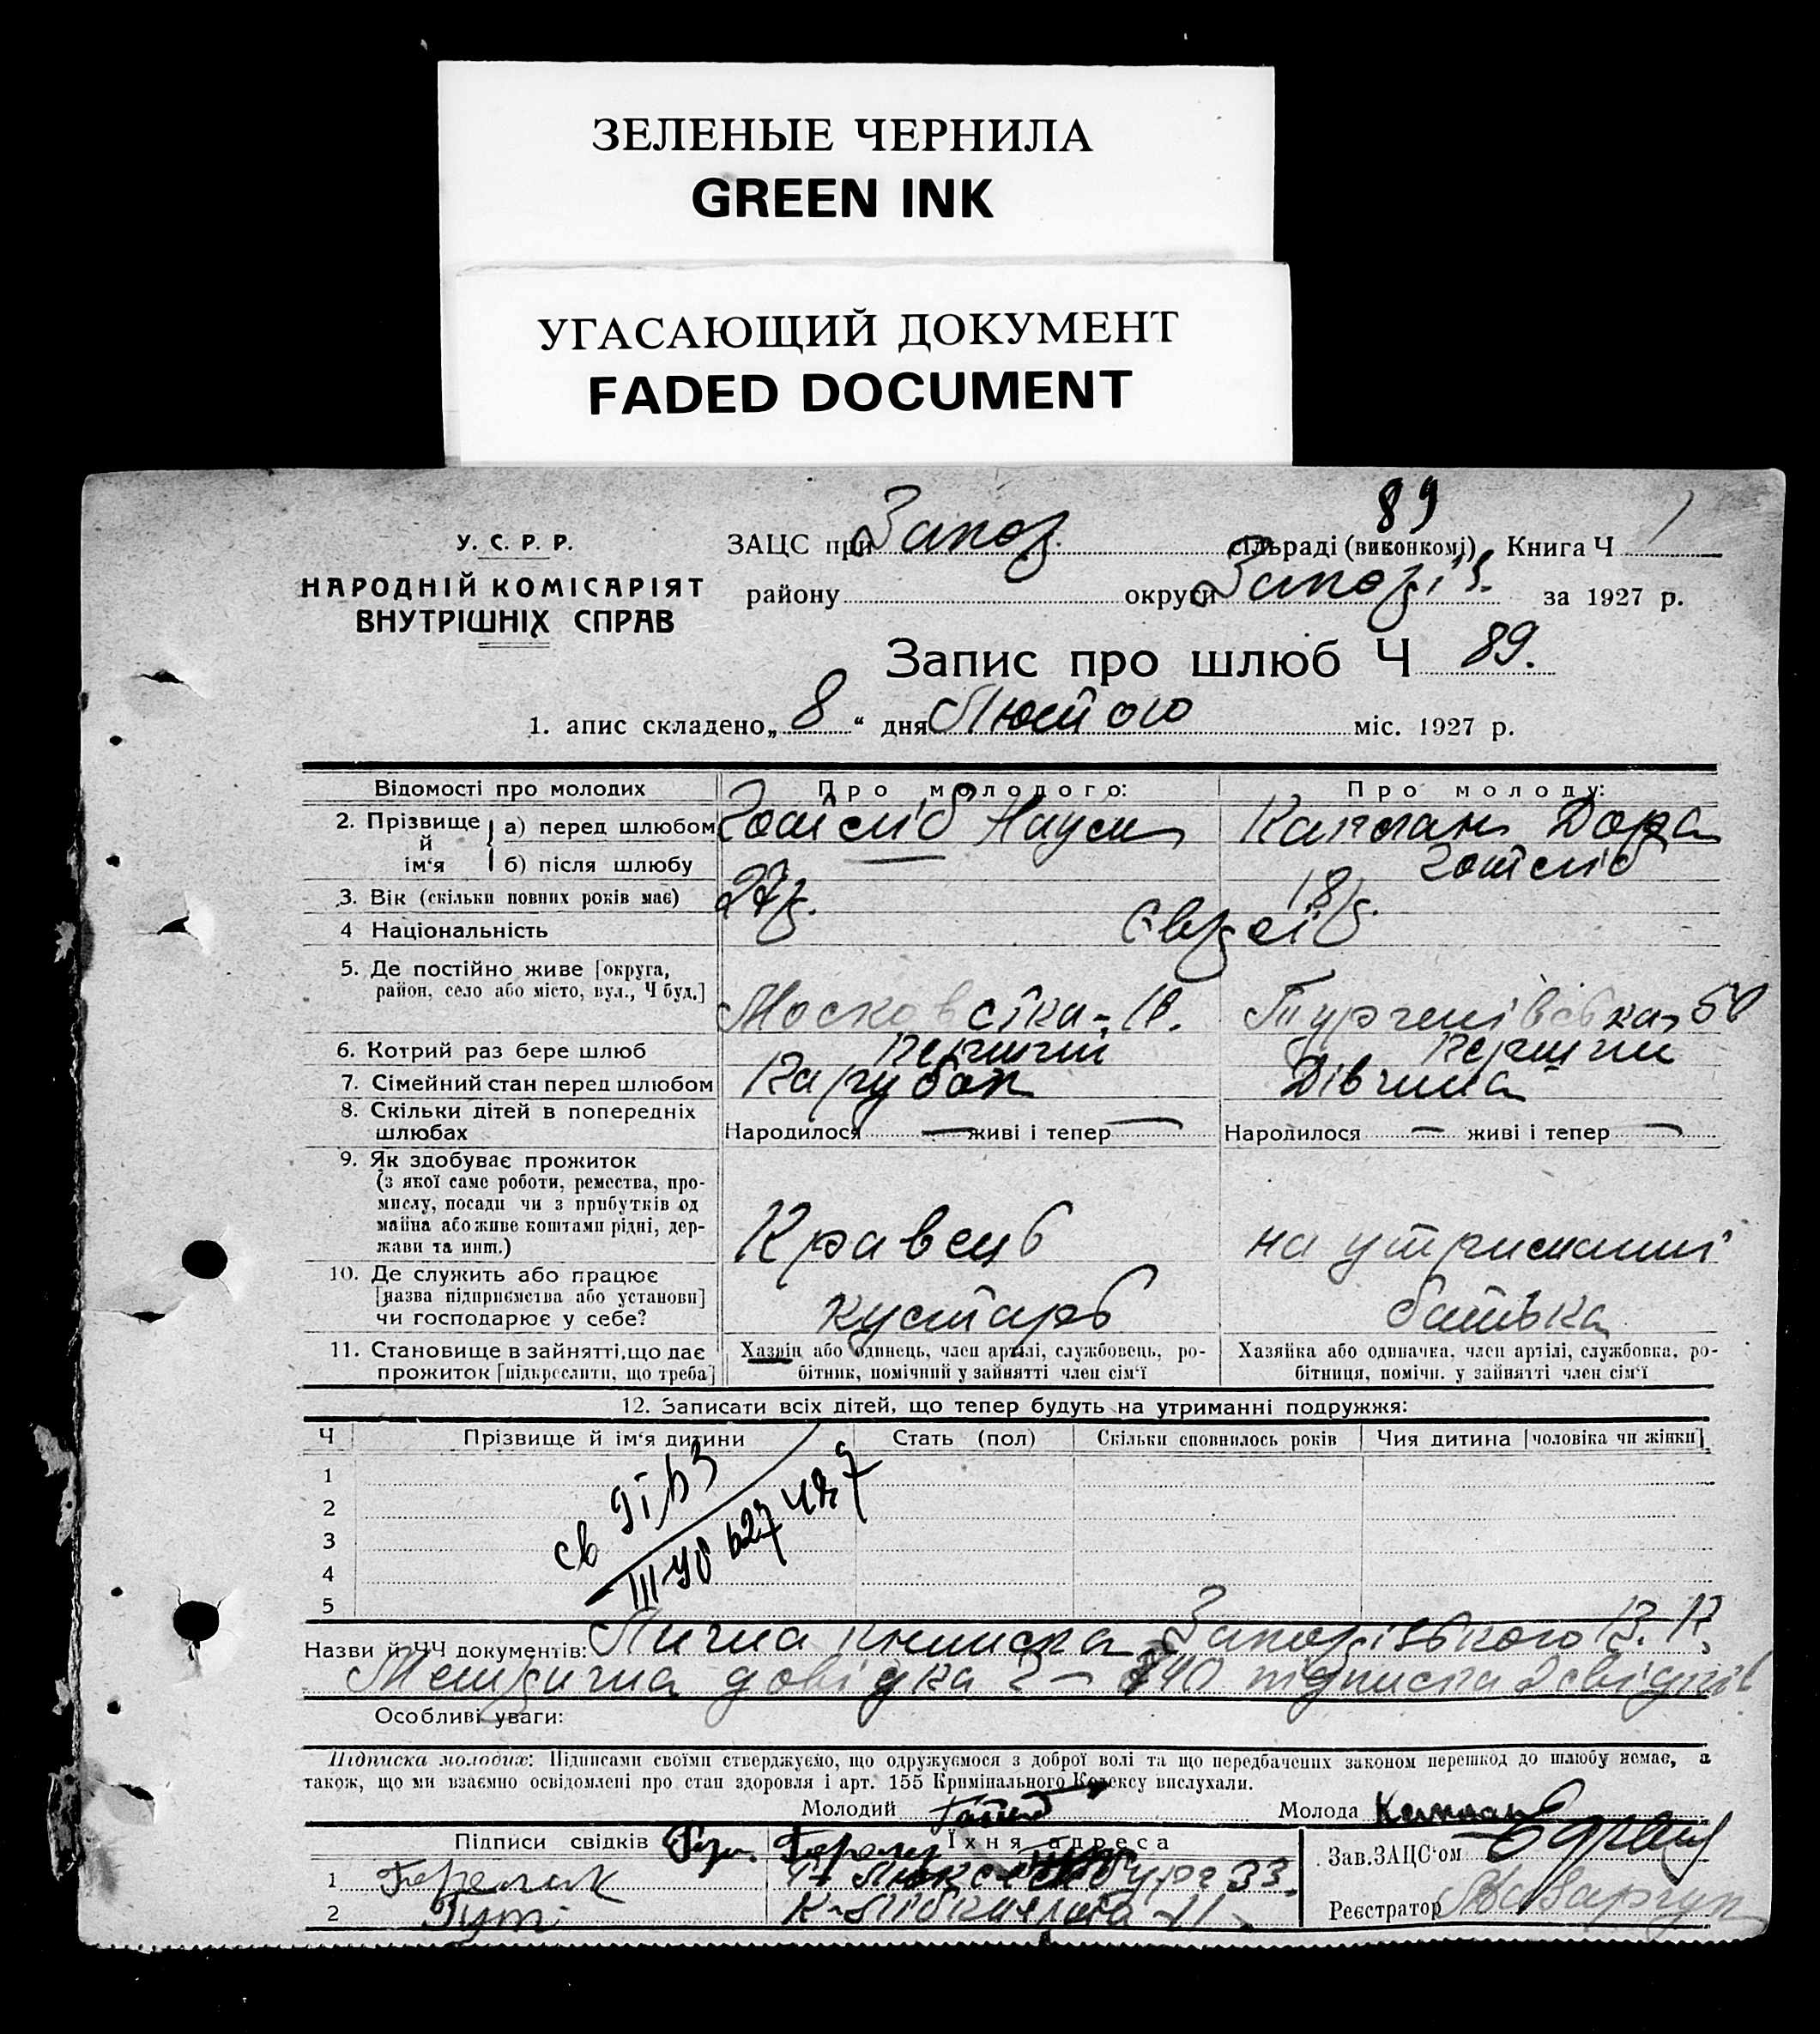 ЗЕЛЕНЫЕ ЧЕРНИЛА
GREEN INK
УГАСАЮЩИЙ ДОКУМЕНТ
FADED DOCUMENT
89
У. С. Р. Р.
НАРОДНІЙ КОМІСАРІЯТ
ВНУТРІШНІХ СПРАВ
ЗАЦС при Запор. сільраді (виконкомі) Книга Ч 1
району округи Запоріз. за 1927 р.
Запис про шлюб Ч 89.
1. апис складено „ 8 “ дня Лютого міс. 1927 р.
Відомості про молодих Про молодого: Про молоду:
2. Прізвище й ім‘я а) перед шлюбом Готліб Наум Каплан Дора
б) після шлюбу Готліб
3. Вік (скільки повних років має) 27 р. 18 р.
4 Національність Євреї
5. Де постійно живе [округа,
район, село або місто, вул., Ч буд.] Московська - 10. Тургенівська, 50
6. Котрий раз бере шлюб Перший Перший
7. Сімейний стан перед шлюбом Парубок Дівчина
8. Скільки дітей в попередніх
шлюбах Народилося — живі і тепер — Народилося — живі і тепер —
9. Як здобуває прожиток
(з якої саме роботи, ремества, про-
мислу, посади чи з прибутків од
майна або живе коштами рідні, дер-
жави та инш.) Кравець на утриманні
10. Де служить або працює
[назва підприємства або установи]
чи господарює у себе? кустарь батька
11. Становище в зайнятті, що дає
прожиток [підкреслити, що треба]
Хазяїн або одинець, член артілі, службовець, ро-
бітник, помічний у зайнятті член сім‘ї
Хазяйка або одиначка, член артілі, службовка, ро-
бітниця, помічн. у зайнятті член сім‘ї
12. Записати всіх дітей, що тепер будуть на утриманні подружжя:
Ч Прізвище й ім‘я дитини Стать (пол) Скільки сповнилось років Чия дитина [чоловіка чи жінки]
1
2
3
4
5
Назви й ЧЧ документів: Лична книжка Запорізького
Медична довідка 2 - підписка 2 свідків
Особливі уваги:
Підписка молодих: Підписами своїми стверджуємо, що одружуємося з доброї волі та що передбачених законом перешкод до шлюбу немає, а
також, що ми взаємно освідомлені про стан здоровля і арт. 155 Кримінального Кодексу вислухали.
Молодий Молода Каплан
Підписи свідків Їхня адреса
1 33.
2 Гут 11
Зав. ЗАЦС‘ом
Реєстратор